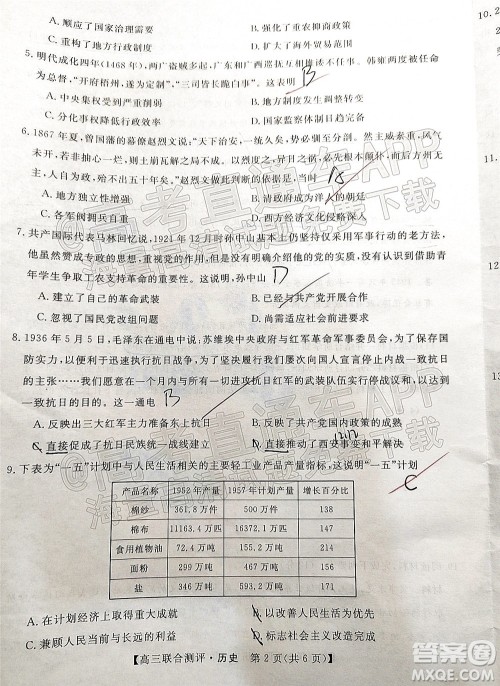 A. 顺应了国家治理需要
B. 改变了重农抑商政策
10. 2
C. 重构了地方行政体制
D. 扩大了海外贸易范围
5. 明代成化四年(1468 年), 两广贼势甚炽, 广东和广西巡抚互相推诿、指责。韩雍定襄为
总督, “开府梧州, 遂为定制”, “三司皆长跪白事”。这表明 B
A. 中央集权受到严重削弱
B. 地方制度发生趋势性变化
C. 分化事权降低行政效率
D. 国家监察体制日趋完备
6. 1867 年夏, 曾国藩的幕僚赵烈文说: “天下治安, 一统久矣, 势必驯至分剖。然主威素重, 风气
未开, 若非抽心一烂, 则土崩瓦解之局不成。以烈度之, 异日之祸必先根本颠仆, 而后方州无
主, 殆不出五十年矣。”赵烈文的忧虑是基于当时
11.
A. 地方独立性增强
B. 清政府成为洋人的朝廷
C. 各军阀拥兵自重
D. 西方经济文化侵略深入
7. 共产国际代表马林回忆说, 1921 年 12 月时孙中山基本上仍坚持仅采用军事行动的革命观。
他虽然赞成专政的思想, 但是没有更加明确的阐述, 没有更加具体的发展, 但表示愿意研究在
青年学生中争取工农支持革命的重要性。这说明, 孙中山 D
A. 已建立自己的革命武装
B. 已经与共产党开展合作
C. 忽视了国民党改组问题
D. 尚需适应革命形势发展
12.
8. 1936 年 5 月 5 日, 毛泽东在通电中说, 苏维埃中央政府与红军革命军事委员会, 为了保存国
防实力, 以便利于迅速执行抗日战争, 为了坚决履行我们屡次向国人宣言停止内战、一致抗日
的主张……我们愿意……和所有一切进攻抗日红军的武装队伍实行停战议和, 以达到一致抗
日的目的……。这一通电 B
A. 反映出三大红军主力东渡抗日
B. 反映了共产党国内政策的成熟
12/12
C. 直接促成了抗日民族统一战线建立
D. 直接推动了西安事变和平解决
9. 下表为“一五”计划中与人民生活相关的主要轻工业产品产量指标, 这说明“一五”计划
C
产品名称 1952 年产量 1957 年计划产量 增长百分比
棉纱 361.8 万件 500 万件 138
棉布 11163.4 万匹 16372.1 万匹 147
食用植物油 72.4 万吨 155.2 万吨 214
面粉 299 万吨 467 万吨 156
盐 346 万吨 593.2 万吨 171
A. 在计划经济上上取得重大成就
B. 以改善人民生活为目的
C. 兼顾人民美好生活的需要
D. 标志社会主义改造完成
【高三联合测评·历史 第 2 页(共 6 页)】
高考直通车APP
海量高清试卷免费下载
答案圈